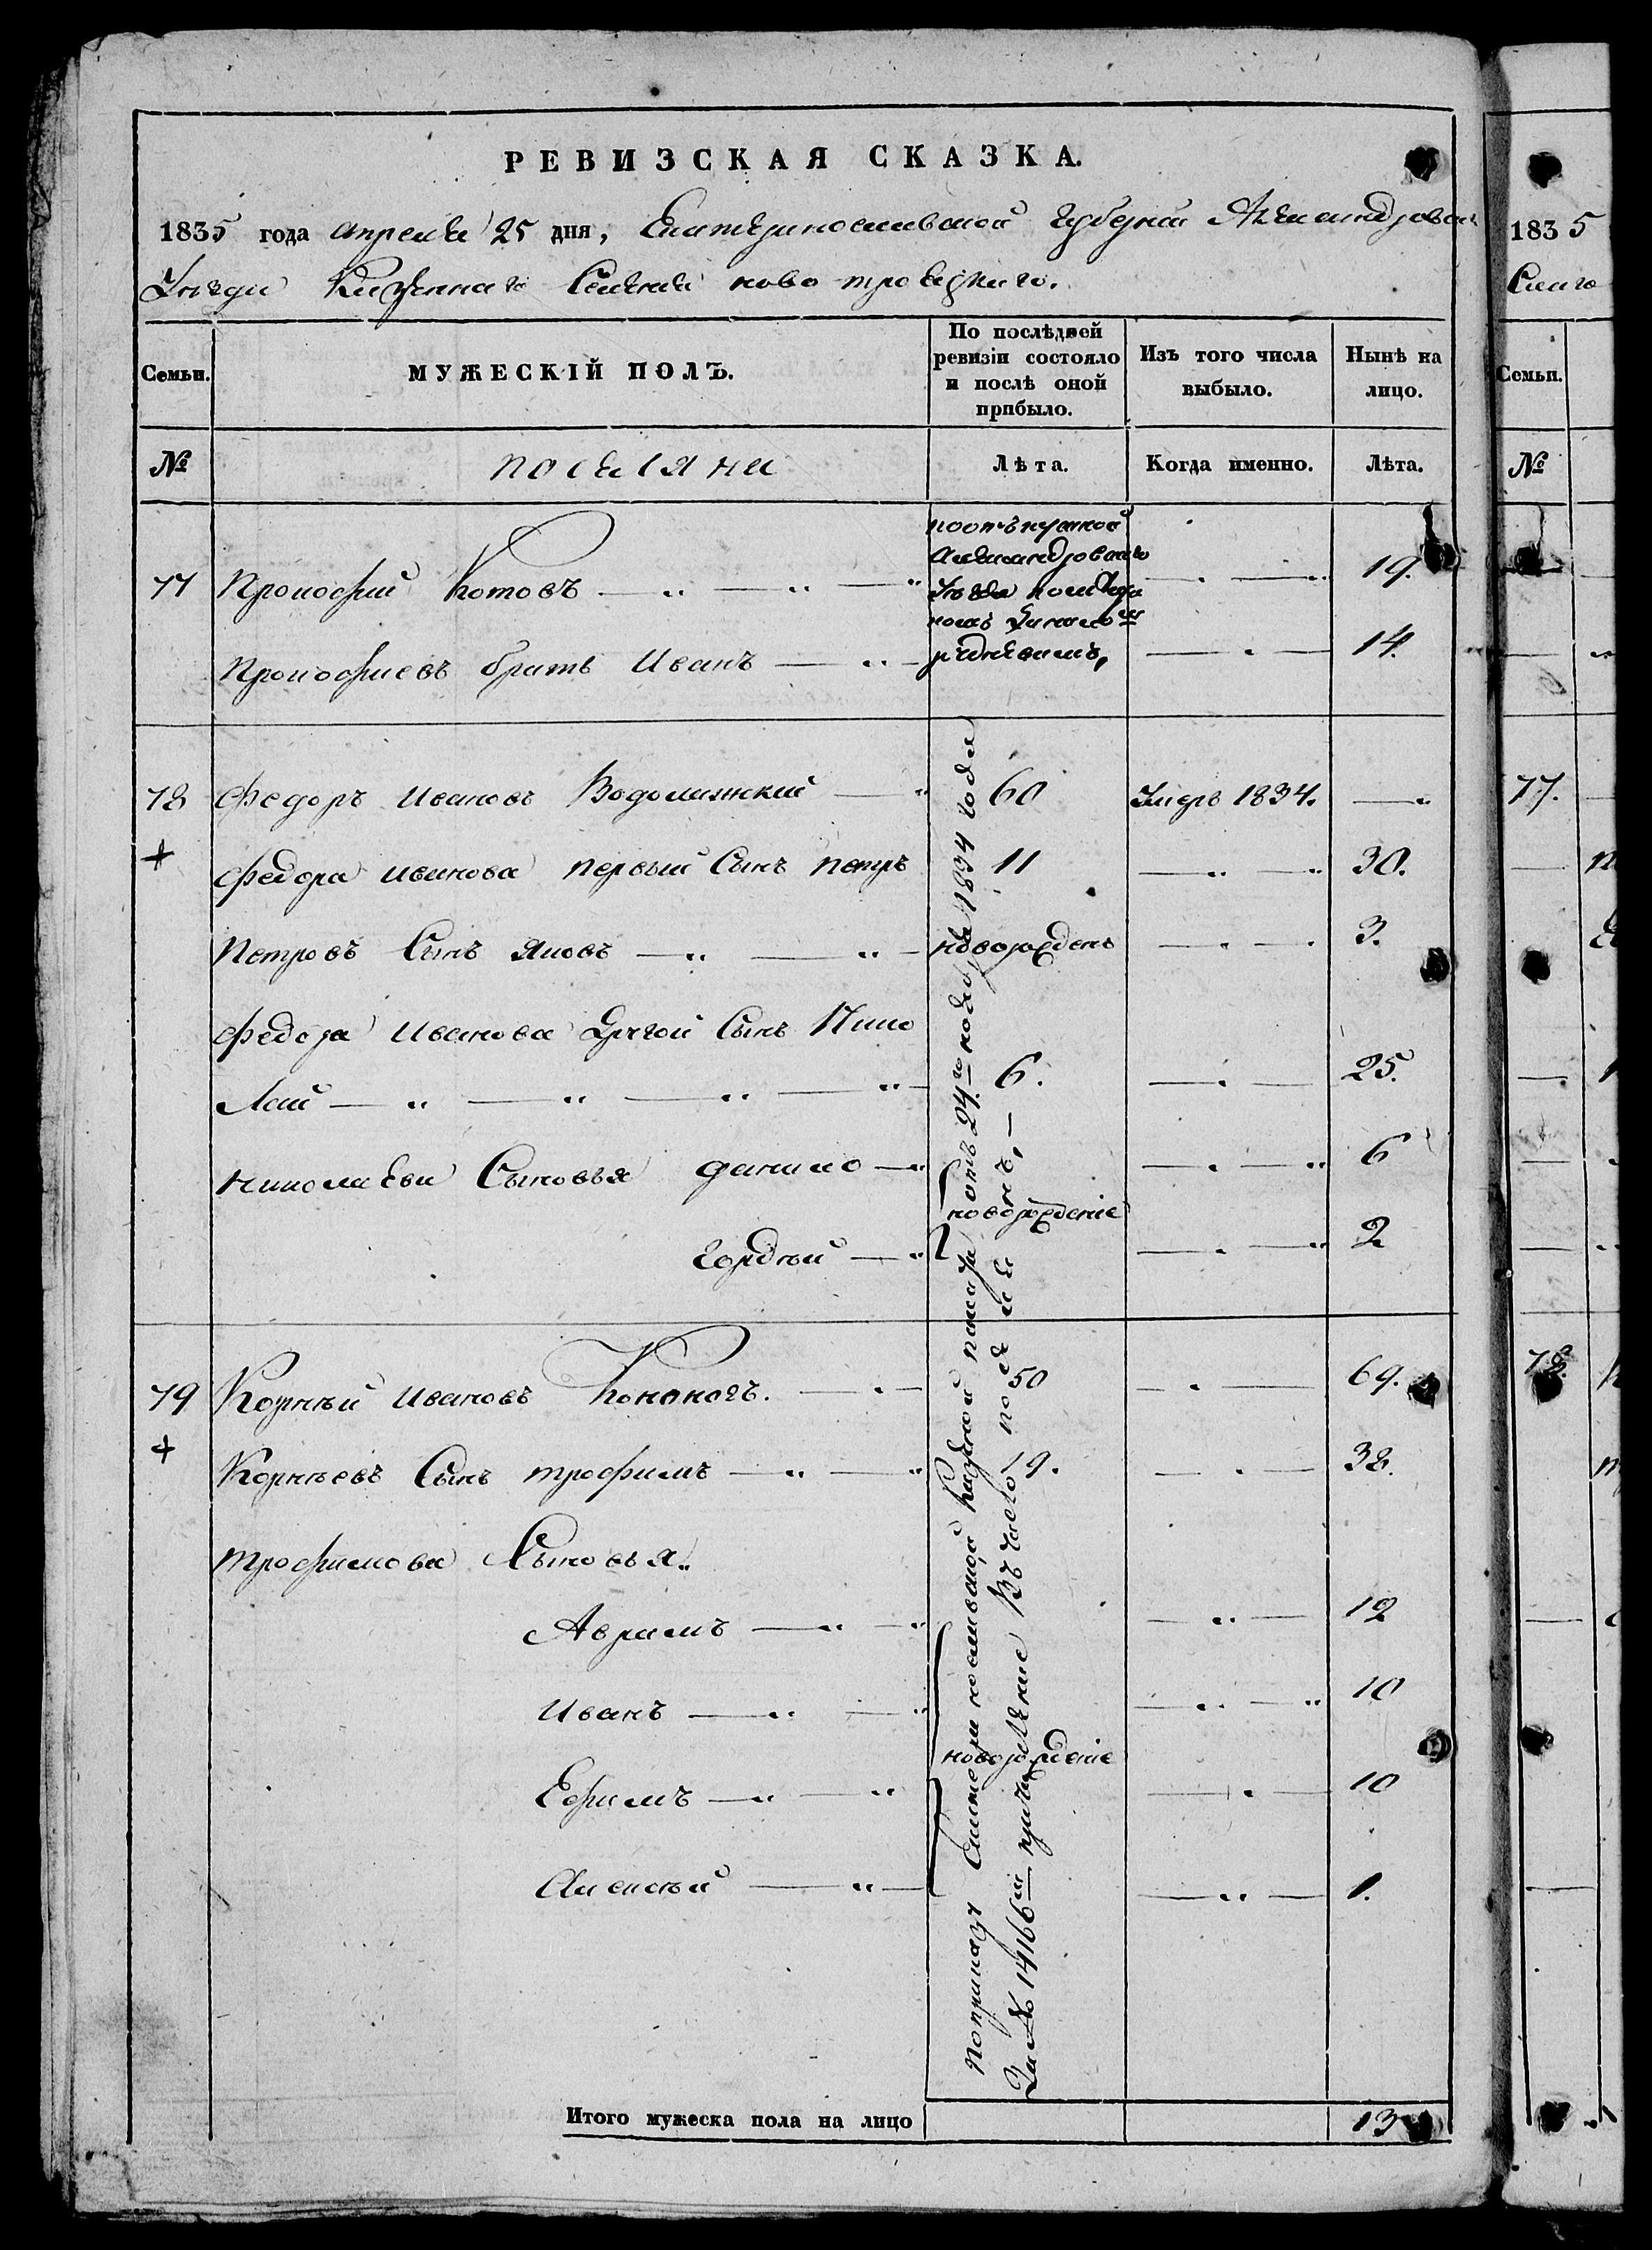 РЕВИЗСКАЯ СКАЗКА.
1835 года апреля 25 дня, Екатеринославской губернии Александровска
Уезда Казеннаго Селения ново троецкаго.
Семьи.
МУЖЕСКІЙ ПОЛЪ.
По послѣдней ревизіи состояло и послѣ оной прибыло.
Изъ того числа выбыло.
Нынѣ на лицо.
№ поселяне Лѣта. Когда именно. Лѣта.
77 Прокофий Котовъ 19.
Прокофиевъ братъ Иванъ 14.
78 Федоръ Ивановъ Водолажский 60 Умеръ 1834.
+ Федора Иванова первый Сынъ Петръ 11 30.
Петровъ Сынъ Яковъ новорожденъ 3.
Федора Иванова другой Сынъ Нико
Лай 6. 25.
Николаева Сыновья данило 6
новорожденіе
Гордѣй 2
79 Корнѣй Ивановъ Кононогъ. 50 69.
+ Корнѣевъ Сынъ трофимъ 19. 38.
трофимова Сыновья
Аврамъ 12
Иванъ 10
новорожденіе
Ефимъ 10
Алексѣй 1.
от 24го ноября 1834 года
За № 14166м причисление въ число
Итого мужеска пола на лицо 13
1835
Семьи.
№
77.
78.